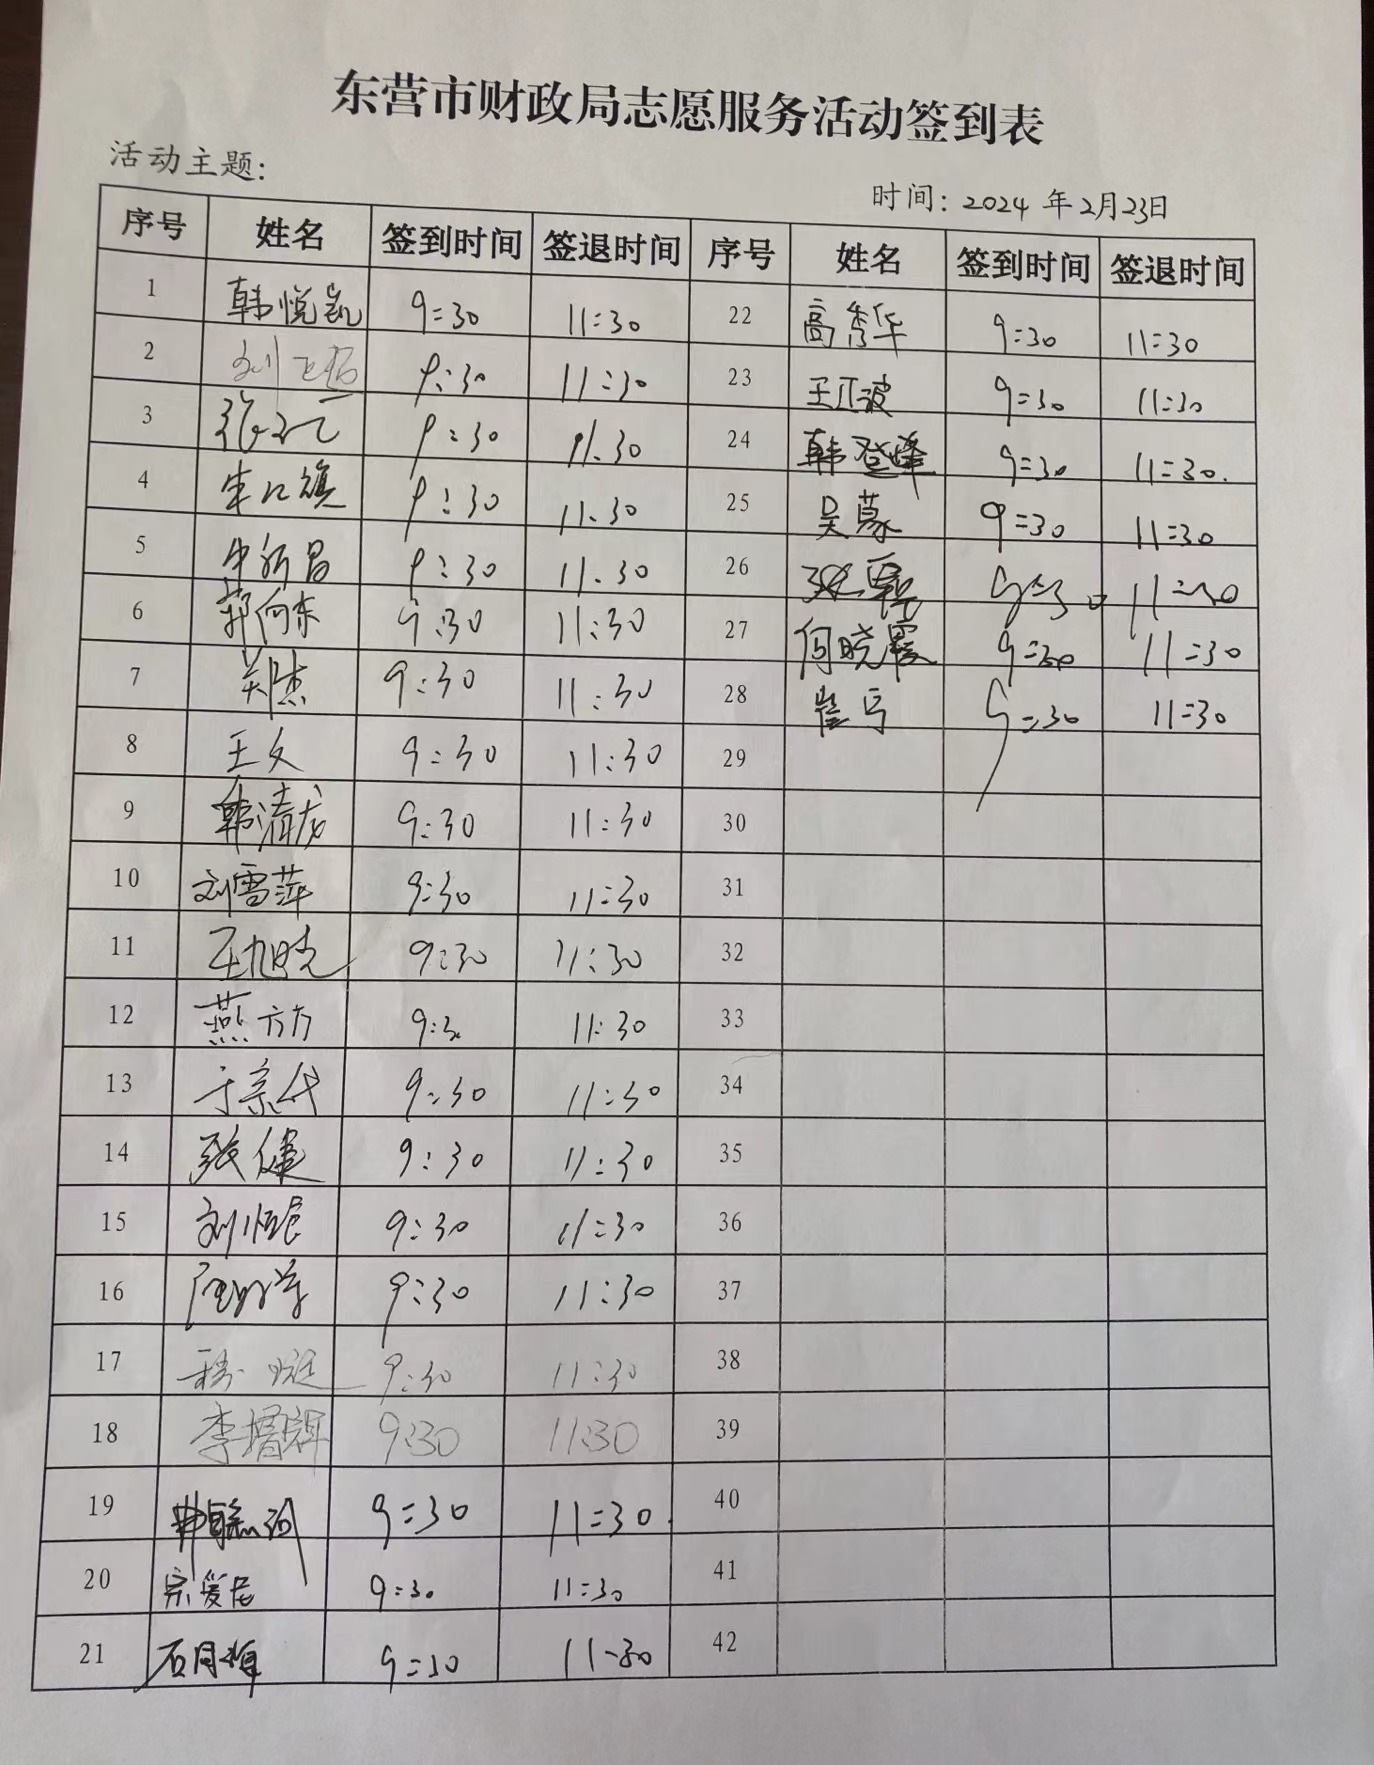 东营市财政局志愿服务活动签到表
活动主题:
时间: 2024 年2月23日
序号 姓名 签到时间 签退时间 序号 姓名 签到时间 签退时间
1 韩悦凯 9:30 11:30 22 高秀华 9:30 11:30
2 9:30 11:30 23 王正波 9:30 11:30
3 9:30 11.30 24 韩登峰 9:30 11:30.
4 9:30 11.30 25 吴蒙 9:30 11:30
5 9:30 11.30 26 9:30 11:30
6 郭向东 9:30 11:30 27 何晓霞 9:30 11:30
7 关杰 9:30 11:30 28 9:30 11:30
8 王文 9:30 11:30 29
9 韩清龙 9:30 11:30 30
10 刘雪萍 9:30 11:30 31
11 王旭晓 9:30 11:30 32
12 燕方方 9:30 11:30 33
13 9:30 11:30 34
14 张健 9:30 11:30 35
15 9:30 11:30 36
16 9:30 11:30 37
17 9:30 11:30 38
18 9:30 11:30 39
19 9:30 11:30 40
20 宗爱 9:30 11:30 41
21 石月 9:30 11-30 42